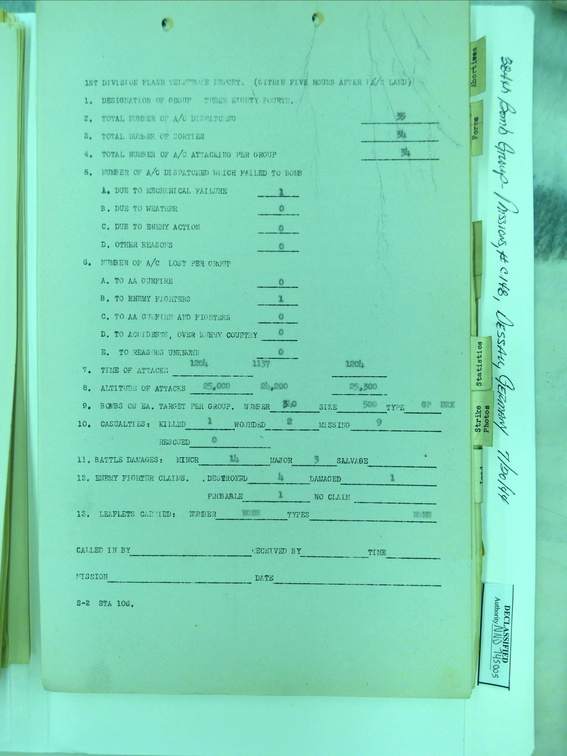 1ST DIVISION FLASH TELETYPE REPORT. (WITHIN FIVE HOURS AFTER A/C LAND)
1. DESIGNATION OF GROUP THREE EIGHTY FOURTH.
2. TOTAL NUMBER OF A/C DISPATCHED 35
3. TOTAL NUMBER OF SORTIES 34
4. TOTAL NUMBER OF A/C ATTACKING PER GROUP 34
5. NUMBER OF A/C DISPATCHED WHICH FAILED TO BOMB
A. DUE TO MECHANICAL FAILURE 1
B. DUE TO WEATHER 0
C. DUE TO ENEMY ACTION 0
D. OTHER REASONS 0
6. NUMBER OF A/C LOST PER GROUP
A. TO AA GUNFIRE 0
B. TO ENEMY FIGHTERS 1
C. TO AA GUNFIRE AND FIGHTERS 0
D. TO ACCIDENTS, OVER ENEMY COUNTRY 0
E. TO REASONS UNKNOWN 0
7. TIME OF ATTACKS 1204 1157 1204
8. ALTITUDE OF ATTACKS 25,000 24,200 25,300
9. BOMBS ON EA. TARGET PER GROUP. NUMBER 340 SIZE 500 TYPE GP
10. CASUALTIES: KILLED 1 WOUNDED 2 MISSING 9
RESCUED 0
11. BATTLE DAMAGES: MINOR 14 MAJOR 3 SALVAGE
12. ENEMY FIGHTER CLAIMS. DESTROYED 4 DAMAGED 1
PROBABLE 1 NO CLAIM
13. LEAFLETS CARRIED: NUMBER NONE TYPES NONE
CALLED IN BY RECEIVED BY TIME
MISSION DATE
S-2 STA 106.
Abortives
Forms
Statistics
Strike
Photos
384th Bomb Group - Missions # C148, DESSAU, GERMANY 7/20/44
DECLASSIFIED
Authority NND 745005